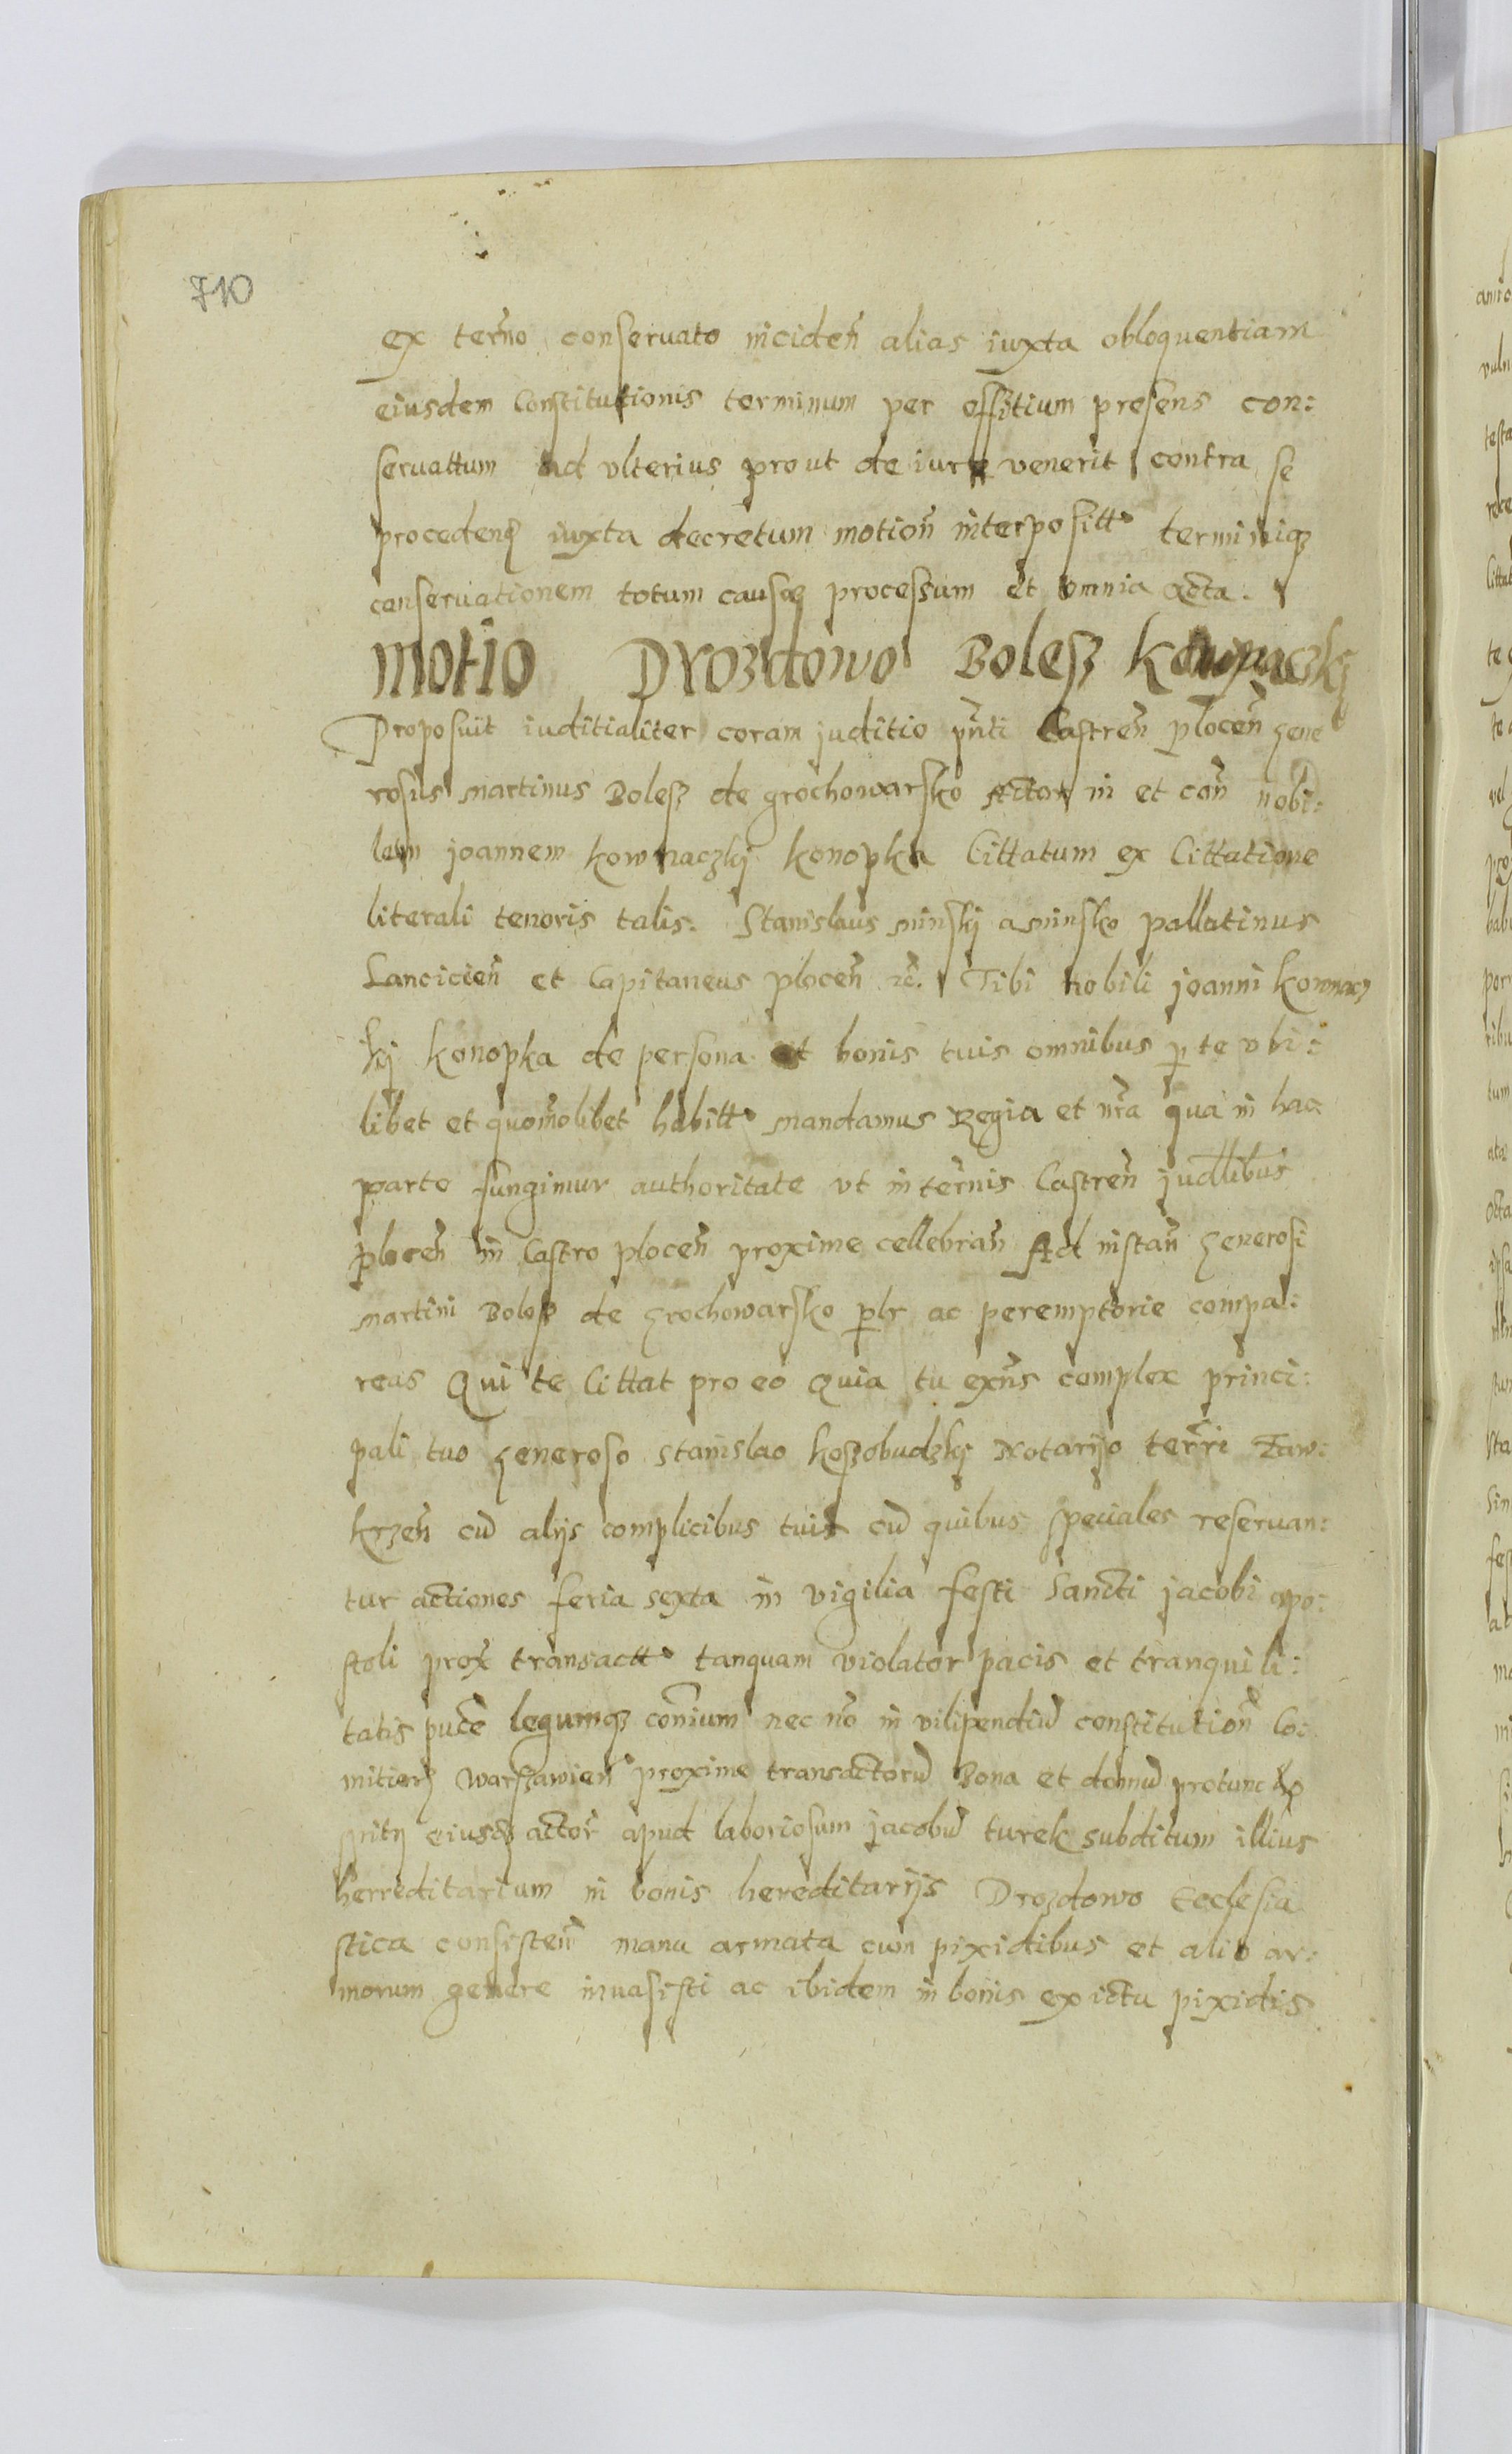 710
ex ter̃no conseruato inciden̄ alias iuxta obloquentiam
eiusdem Constitutionis terminum per offitium presens con:
seruattum ad vlterius prout de iure venerit contra se
procedenꝫ iuxta decretum motion̄ interpositt° terminiqꝫ
conseruationem totum causæ processum et omnia acta.
Motio Drozdowo Bolesz Kownaczkj
Proposuit iuditialiter coram juditio pn̄ti Castren̄ plocen̄ gene
rosus martinus Bolesz de grochowarsko Actor in et con̄ nobi:
lem joannem kownaczkj konopka Cittatum ex Cittatione
literali tenoris talis. Stanislaus minskj a minsko pallatinus
Lancicien̄ et Capitaneus plocen̄ ꝛc̄. Tibi nobili joanni kownacz
kj konopka de persona et bonis tuis omnibus p te vbi:
libet et quom̄olibet habitt° mandamus Regia et nr̄a qua in hac
parte fungimur authoritate vt in ter̄nis Castren̄ judl̄ibus
plocen̄ in Castro plocen̄ proxime cellebran̄ Ad instan̄ generosi
martini Bolesz de grochowarsko pl̄r ac peremptorie compa:
reas Qui te Cittat pro eo Quia tu exn̄s complex princi:
pali tuo generoso stanislao koszobudzkj Notarijo ter̄ri Zaw:
krzen̄ cū alijs complicibus tuis cū quibus speciales reseruan:
tur actiones feria sexta in vigilia festi Sancti jacobi apo:
stoli prox̄ transactt° tanquam violator pacis et tranquili:
tatis pub̄ce legumqꝫ com̄ium nec nō in vilipendiū constitution̄ Co:
mitiorꝫ warszawien̄ proxime transactorū Bona et domū protunc ho
spitij eiusdꝫ actor̄ apud laboriosum jacobū turek subditum illius
herreditarium in bonis hereditarijs Drozdowo Ecclesia
stica consisten̄ manu armata cum pixidibus et alio ar:
morum genere inuasisti ac ibidem in bonis ex ictu pixidis